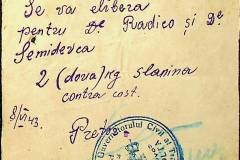 Se va elibera
pentru Dr Radico și Dr
Semidevca
2 (dova) kg slanina
contra cost.
8/VI 43.
Pretor
Guvernatorul Civil al